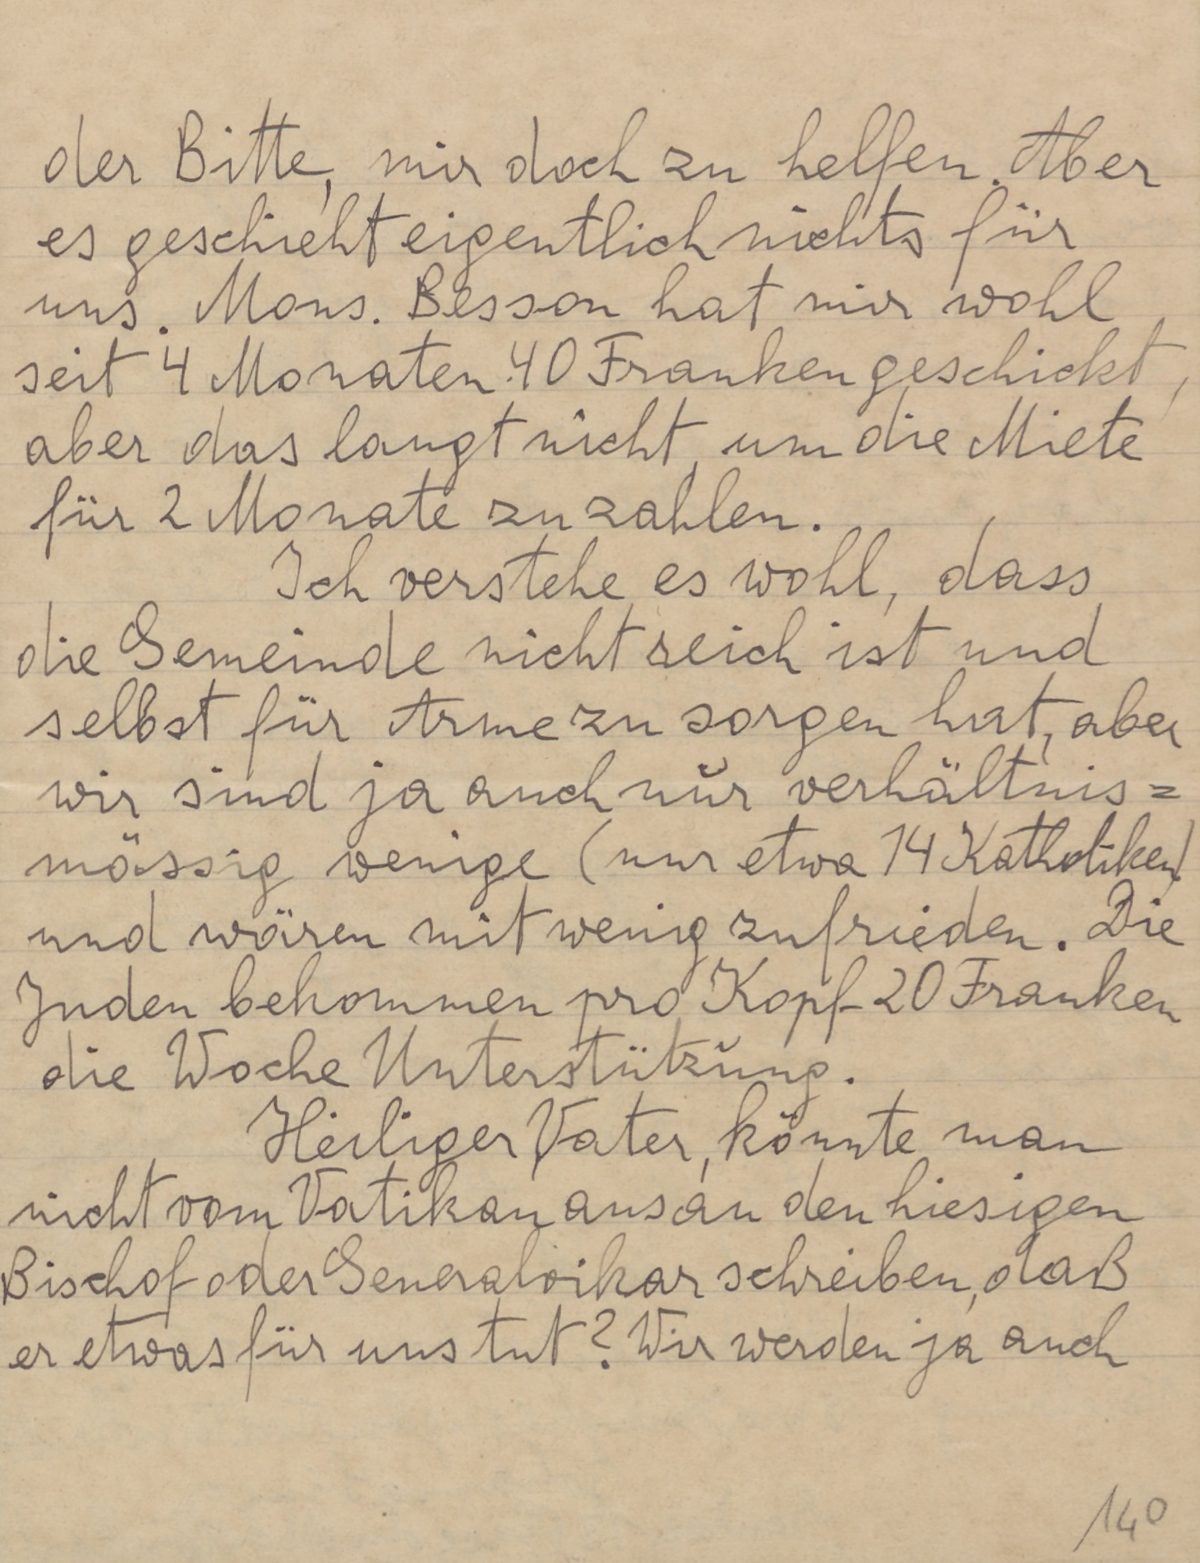 der Bitte, mir doch zu helfen. Aber
es geschieht eigentlich nichts für
uns. Mons. Besson hat mir wohl
seit 4 Monaten 40 Franken geschickt,
aber das langt nicht, um die Miete
für 2 Monate zu zahlen.
Ich verstehe es wohl, dass
die Gemeinde nicht reich ist und
selbst für Arme zu sorgen hat, aber
wir sind ja auch nŭr verhältnis=
mässig wenige (nur etwa 14 Katholiken)
und wären mit wenig zufrieden. Die
Juden bekommen pro Kopf 20 Franken
die Woche Unterstützŭng.
Heiliger Vater, könnte man
nicht vom Vatikan aus an den hiesigen
Bischof oder Generalvikar schreiben, daß
er etwas für uns tut? Wir werden ja auch
140